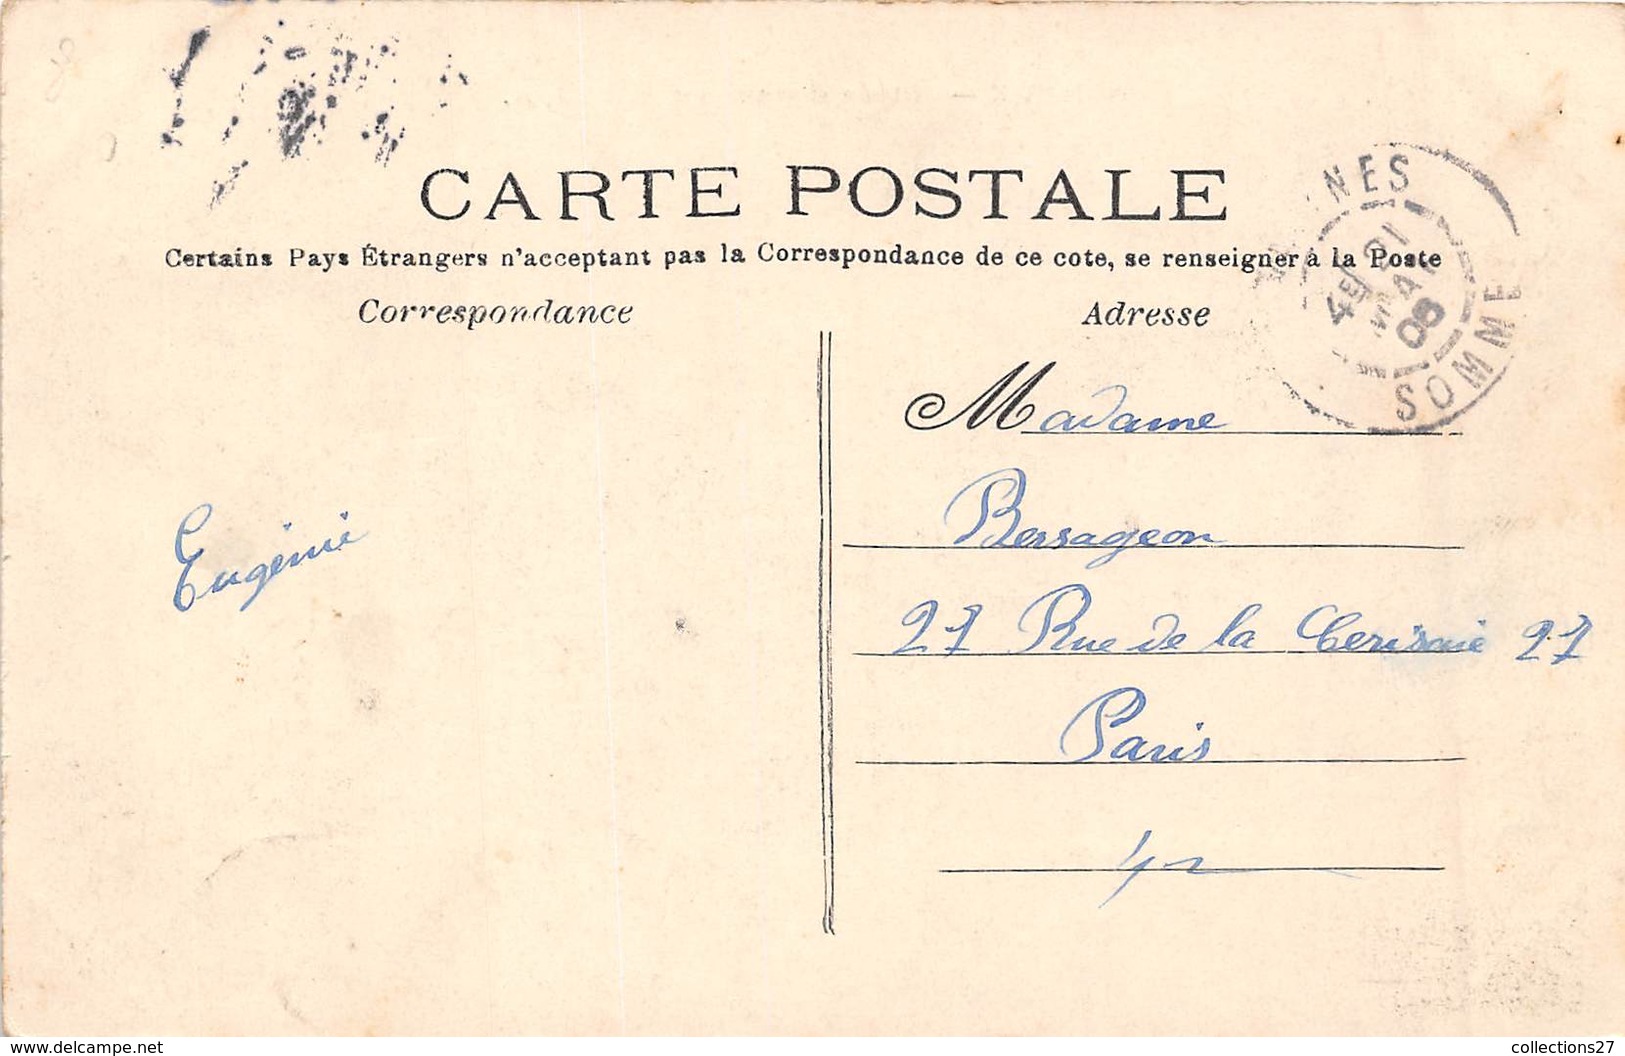 CARTE POSTALE
Certains Pays Étrangers n'acceptant pas la Correspondance de ce cote, se renseigner à la Poste
Correspondance
Adresse
Eugénie
Madame
Bersageon
27 Rue de la Cerisaie 27
Paris
NES
4E 21
MAR
08
SOMME
delcampe.net
collections27